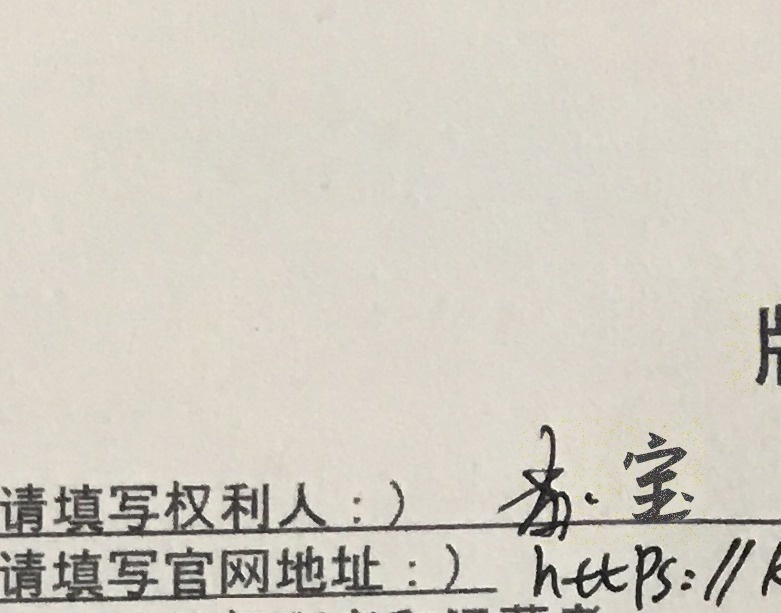 请填写权利人：） 宝
请填写官网地址：） https://